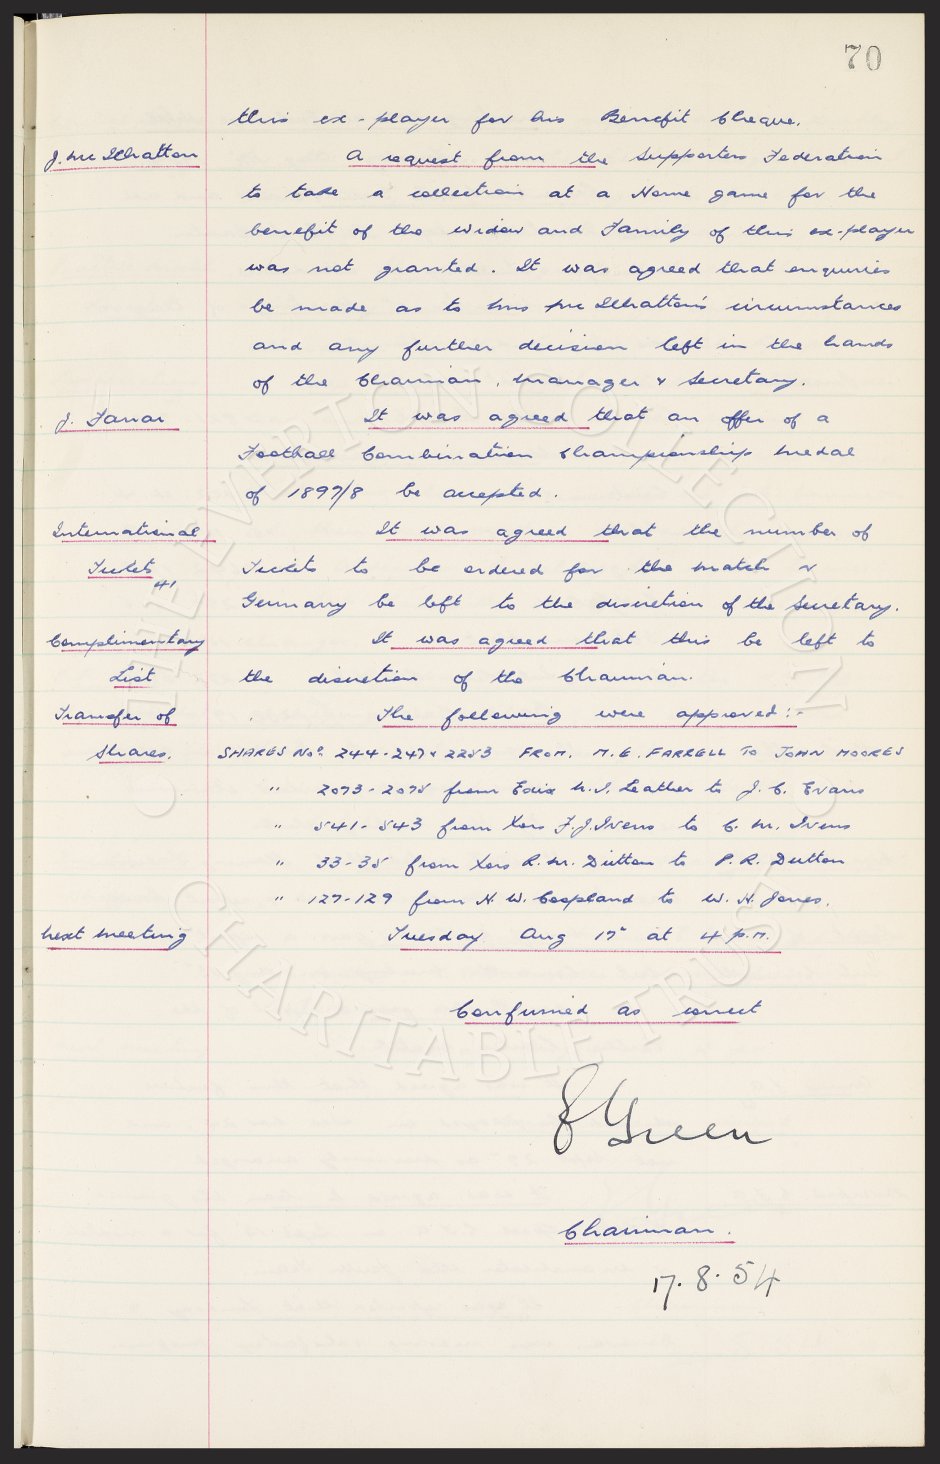 70
this ex-player for his Benefit Cheque.
A request from the Supporters Federation
to take a collection at a Home game for the
benefit of the widow and Family of this ex-player
was not granted. It was agreed that enquiries
be made as to Mrs circumstances
and any further decision left in the hands
of the Chairman, Manager & Secretary.
J. Farrar It was agreed that an offer of a
Football Combination Championship Medal
of 1897/8 be accepted.
International It was agreed that the number of
Tickets Tickets to be ordered for the match v
Germany be left to the discretion of the Secretary.
Complimentary It was agreed that this be left to
List the discretion of the Chairman.
Transfer of The following were approved:-
Shares. SHARES Nos. 244-247 & 2253 FROM. M.E. FARRELL TO JOHN MOORES
" 2073-2075 from Leather to J. C. Evans
" 541-543 from Xors F.J. Ivens to C. M. Ivens
" 33-35 from Xors R. M. Dutton to P. R. Dutton
" 127-129 from H. W. Coopland to W. H. Jones.
Next Meeting Tuesday Aug 17" at 4 p.m.
Confirmed as correct
Green
Chairman.
17.8.54
THE EVERTON COLLECTION
CHARITABLE TRUST